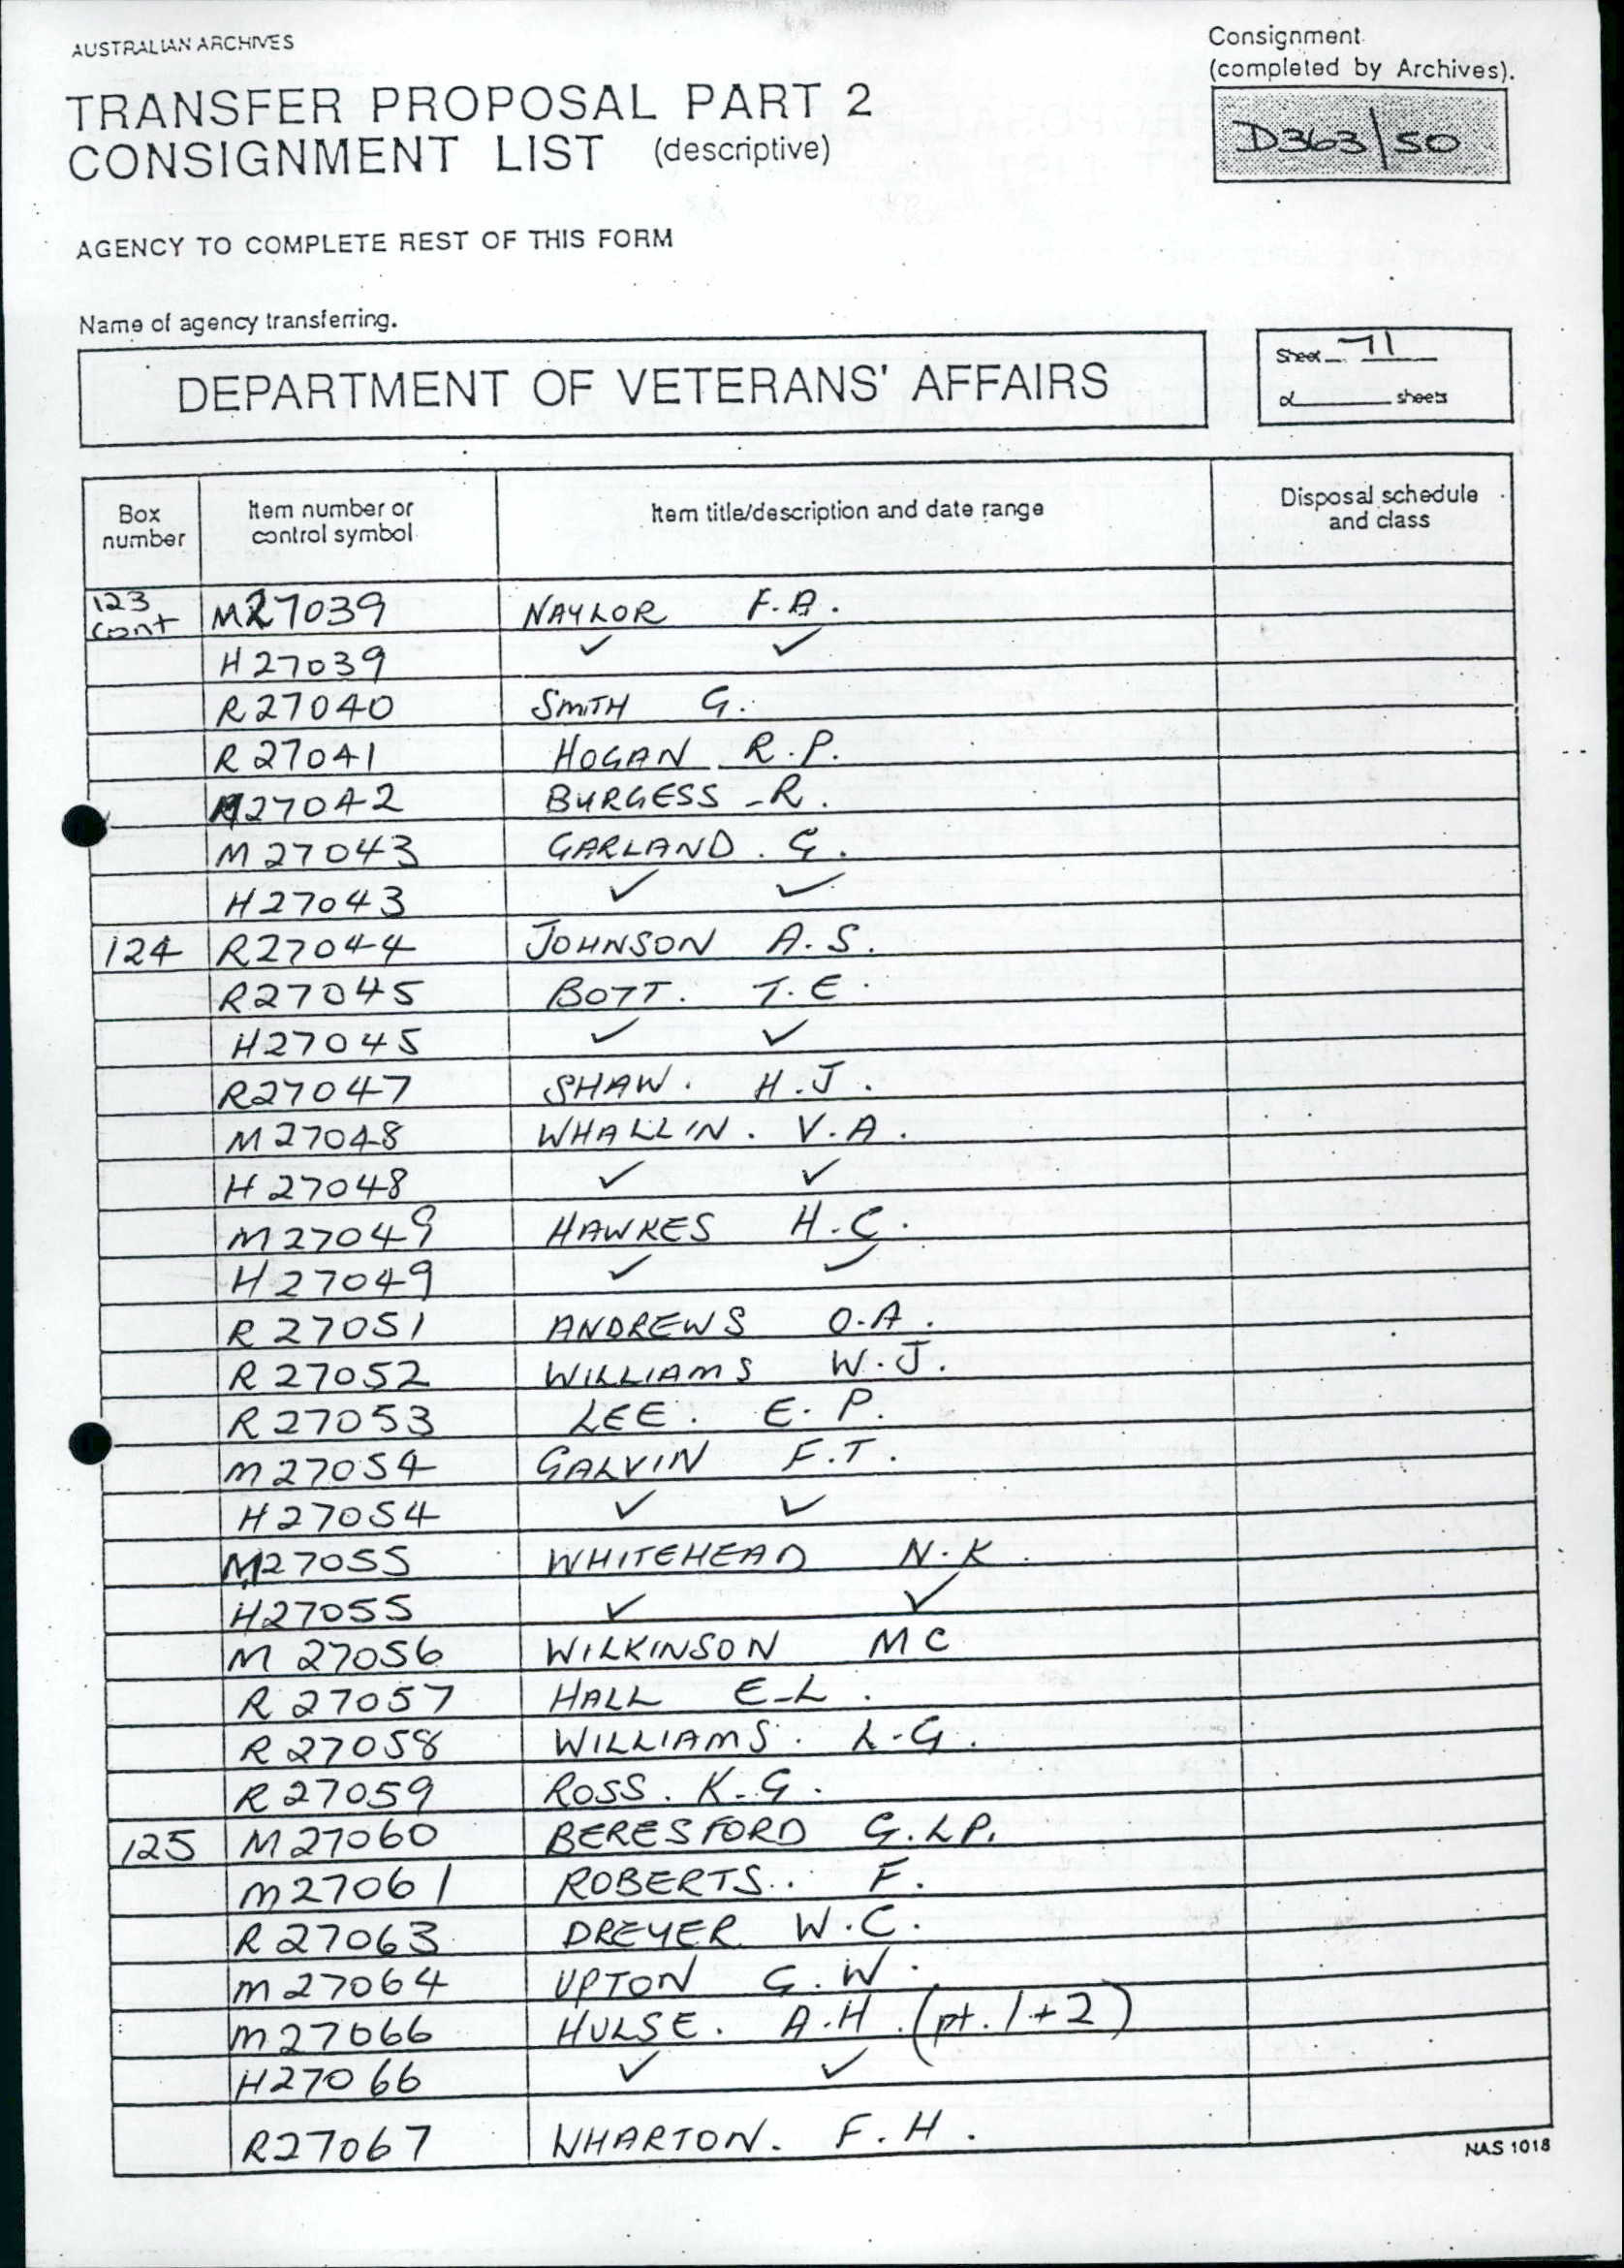 AUSTRALIAN ARCHIVES
Consignment
(completed by Archives).
TRANSFER PROPOSAL PART 2
CONSIGNMENT LIST (descriptive)
D363/50
AGENCY TO COMPLETE REST OF THIS FORM
Name of agency transferring.
DEPARTMENT OF VETERANS' AFFAIRS
Sheet 71
of sheets
Box number Item number or control symbol Item title/description and date range Disposal schedule and class
123 cont M27039 NAYLOR F.A.
H27039 ✓ ✓
R27040 SMITH G.
R27041 HOGAN R.P.
M27042 BURGESS R.
M27043 GARLAND. G.
H27043 ✓ ✓
124 R27044 JOHNSON A.S.
R27045 BOTT. T.E.
H27045 ✓ ✓
R27047 SHAW. H.J.
M27048 WHALLIN. V.A.
H27048 ✓ ✓
M27049 HAWKES H.C.
H27049 ✓ ✓
R27051 ANDREWS O.A.
R27052 WILLIAMS W.J.
R27053 LEE. E.P.
M27054 GALVIN F.T.
H27054 ✓ ✓
M27055 WHITEHEAD N.K.
H27055 ✓ ✓
M27056 WILKINSON MC
R27057 HALL E.L.
R27058 WILLIAMS. L.G.
R27059 ROSS. K.G.
125 M27060 BERESFORD G.LP.
M27061 ROBERTS. F.
R27063 DREYER W.C.
M27064 UPTON G.W.
M27066 HULSE. A.H. (pt. 1+2)
H27066 ✓ ✓
R27067 WHARTON. F.H.
NAS 1018